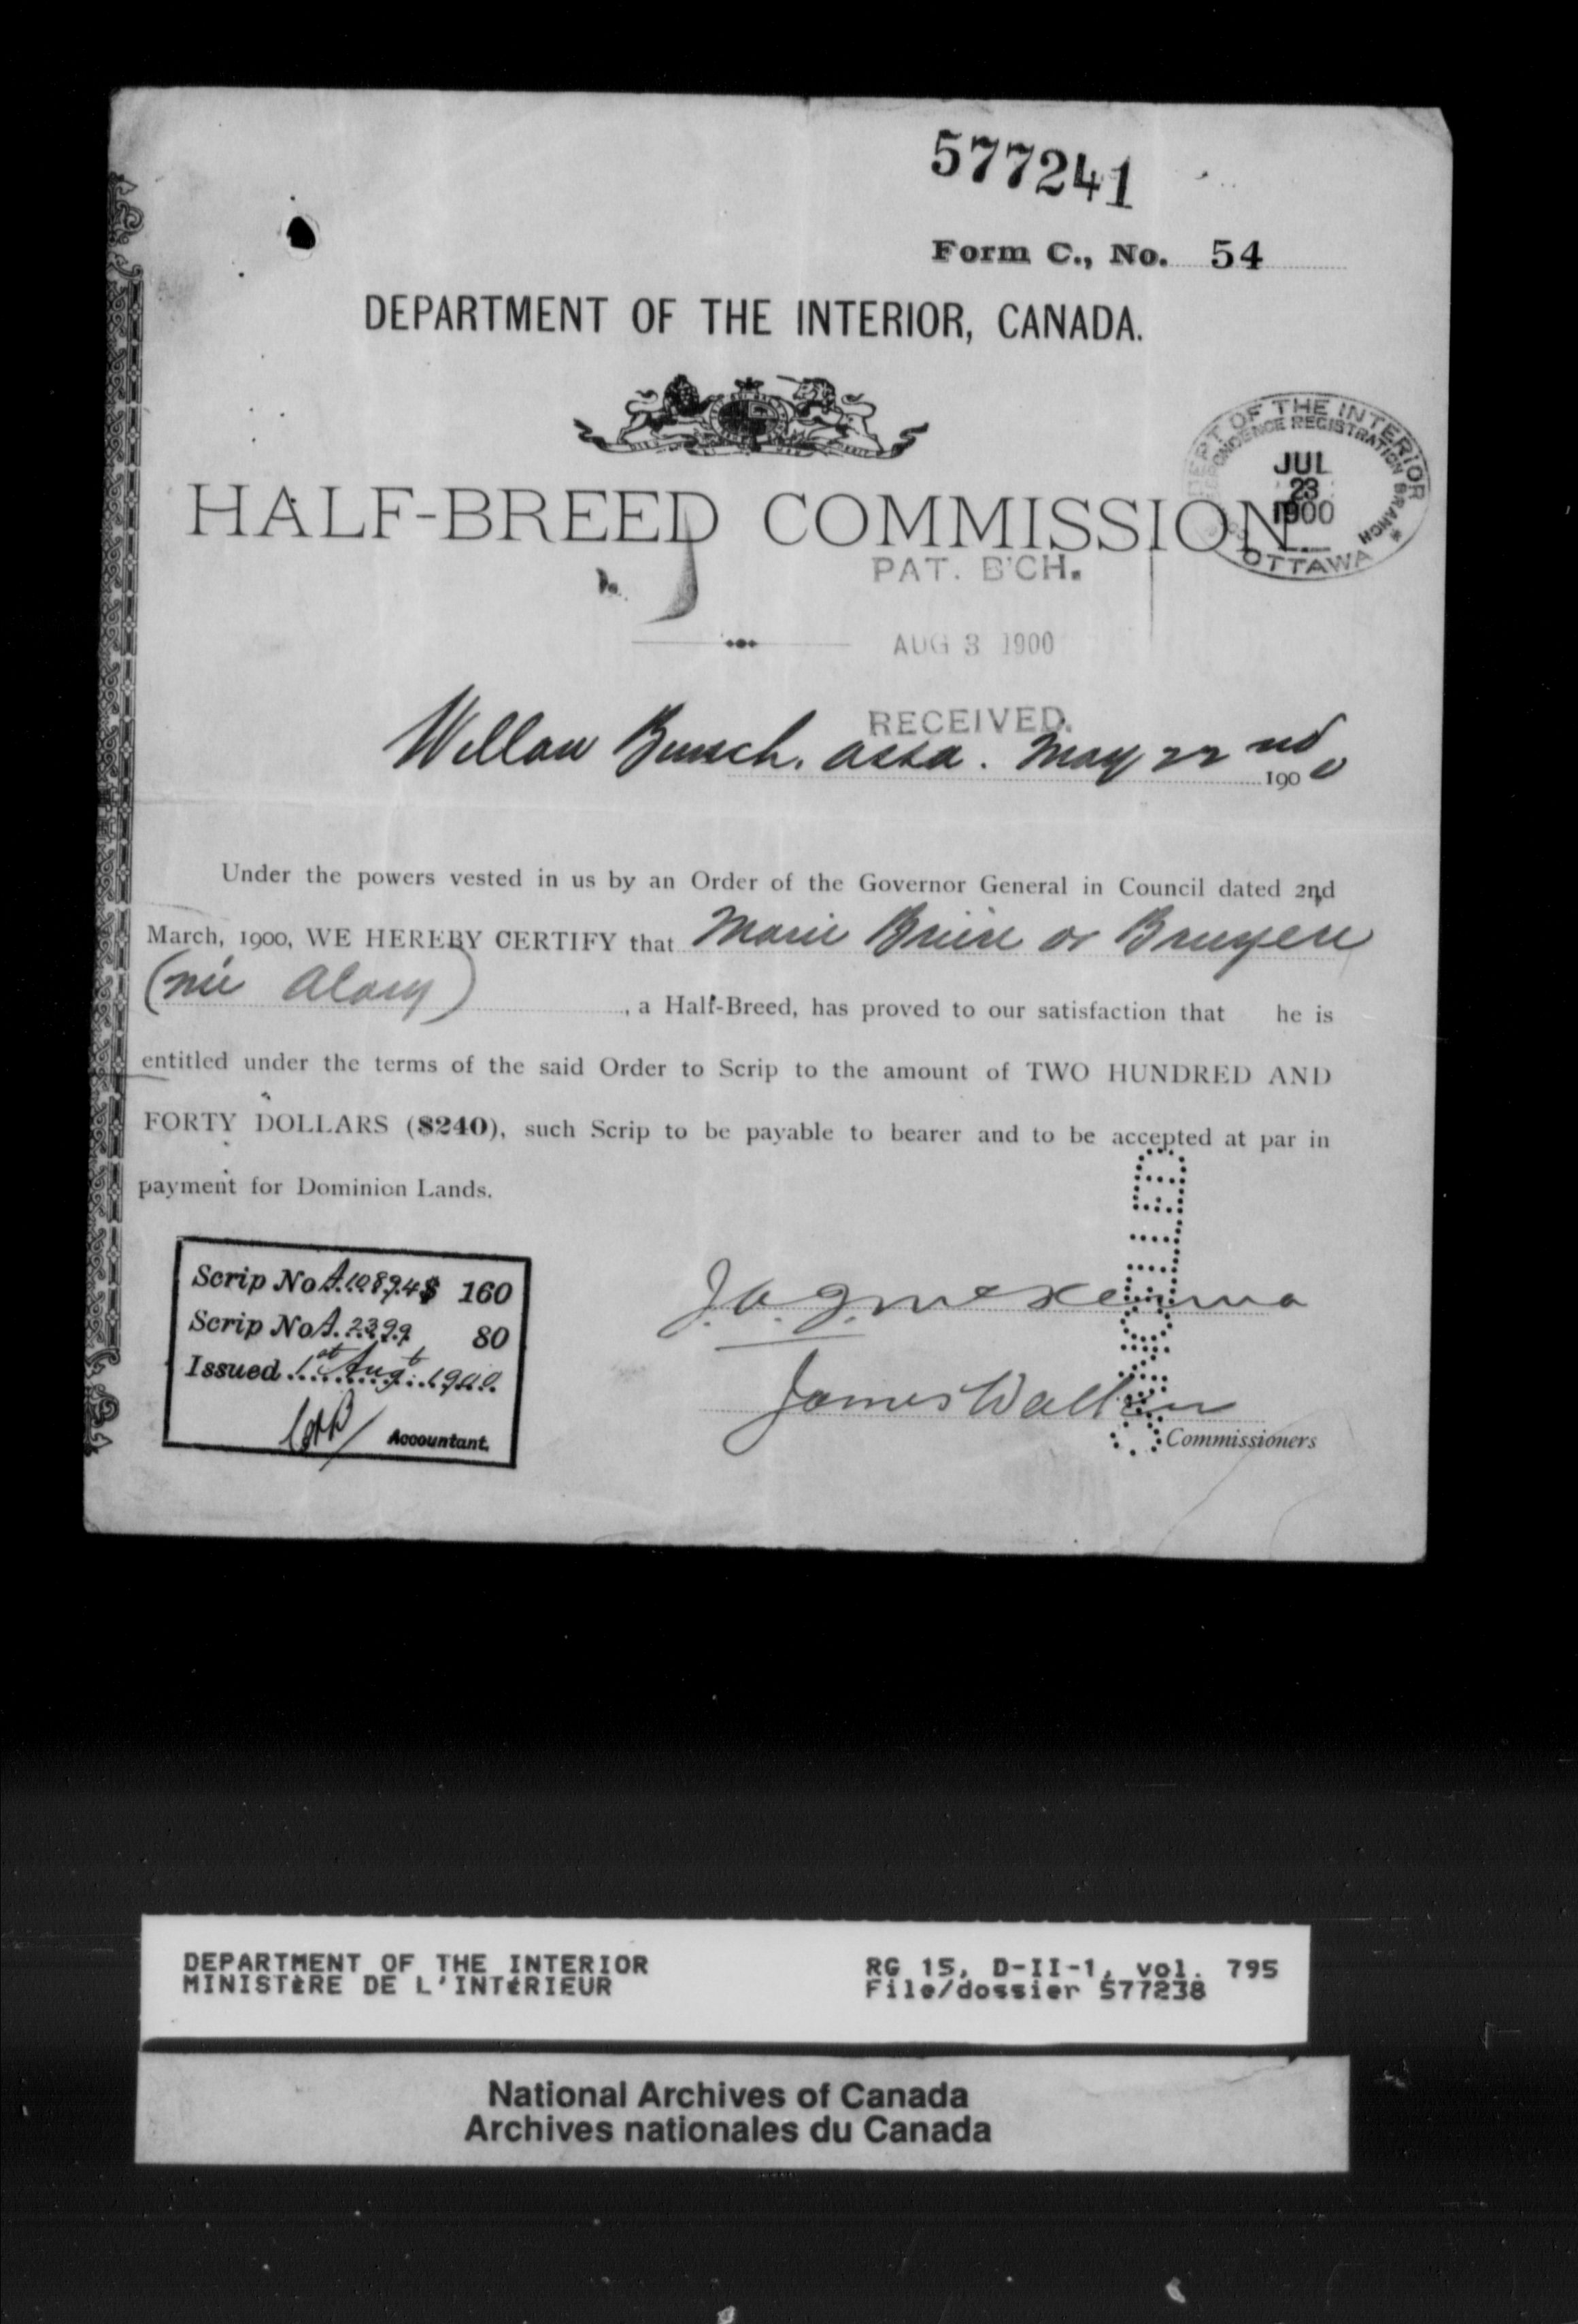 577241
Form C., No. 54
DEPARTMENT OF THE INTERIOR, CANADA.
DEPT OF THE INTERIOR
CORRESPONDENCE REGISTRATION BRANCH
JUL
23
1900
OTTAWA
HALF-BREED COMMISSION.
PAT. B'CH.
AUG 3 1900
RECEIVED.
Willow Bunch. Assa. May 22nd 1900
Under the powers vested in us by an Order of the Governor General in Council dated 2nd
March, 1900, WE HEREBY CERTIFY that Marie Brière or Bruyere
(née Alary), a Half-Breed, has proved to our satisfaction that he is
entitled under the terms of the said Order to Scrip to the amount of TWO HUNDRED AND
FORTY DOLLARS ($240), such Scrip to be payable to bearer and to be accepted at par in
payment for Dominion Lands.
Scrip No A.10894 $ 160
Scrip No A.2399 80
Issued 1st Augt. 1900.
Accountant.
J.A.J. McKenna
James Walker
Commissioners
CANCELLED
DEPARTMENT OF THE INTERIOR
MINISTÈRE DE L'INTÉRIEUR
RG 15, D-II-1, vol. 795
File/dossier 577238
National Archives of Canada
Archives nationales du Canada